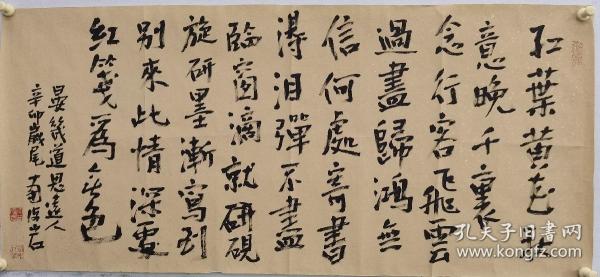 红葉黄花秋
意晚千裏
念行客飞雲
過盡歸鴻無
信何處寄書
得泪彈不盡
臨窗滴就研硯
旋研墨漸寫到
别來此情深處
紅箋為無色
晏幾道思遠人
辛卯歲尾
孔夫子旧书网